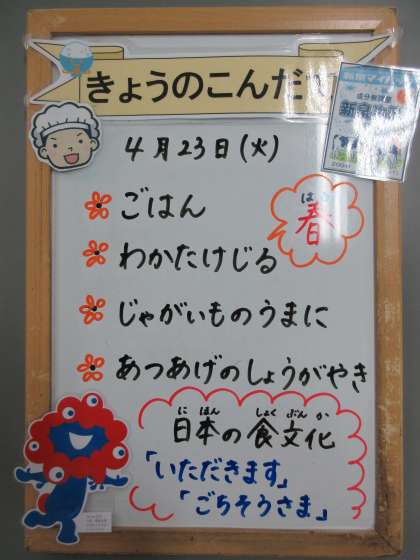 きょうのこんだて
4月23日(火)
ごはん
はる
春
わかたけじる
じゃがいものうまに
あつあげのしょうがやき
にほん しょくぶんか
日本の食文化
「いただきます」
「ごちそうさま」